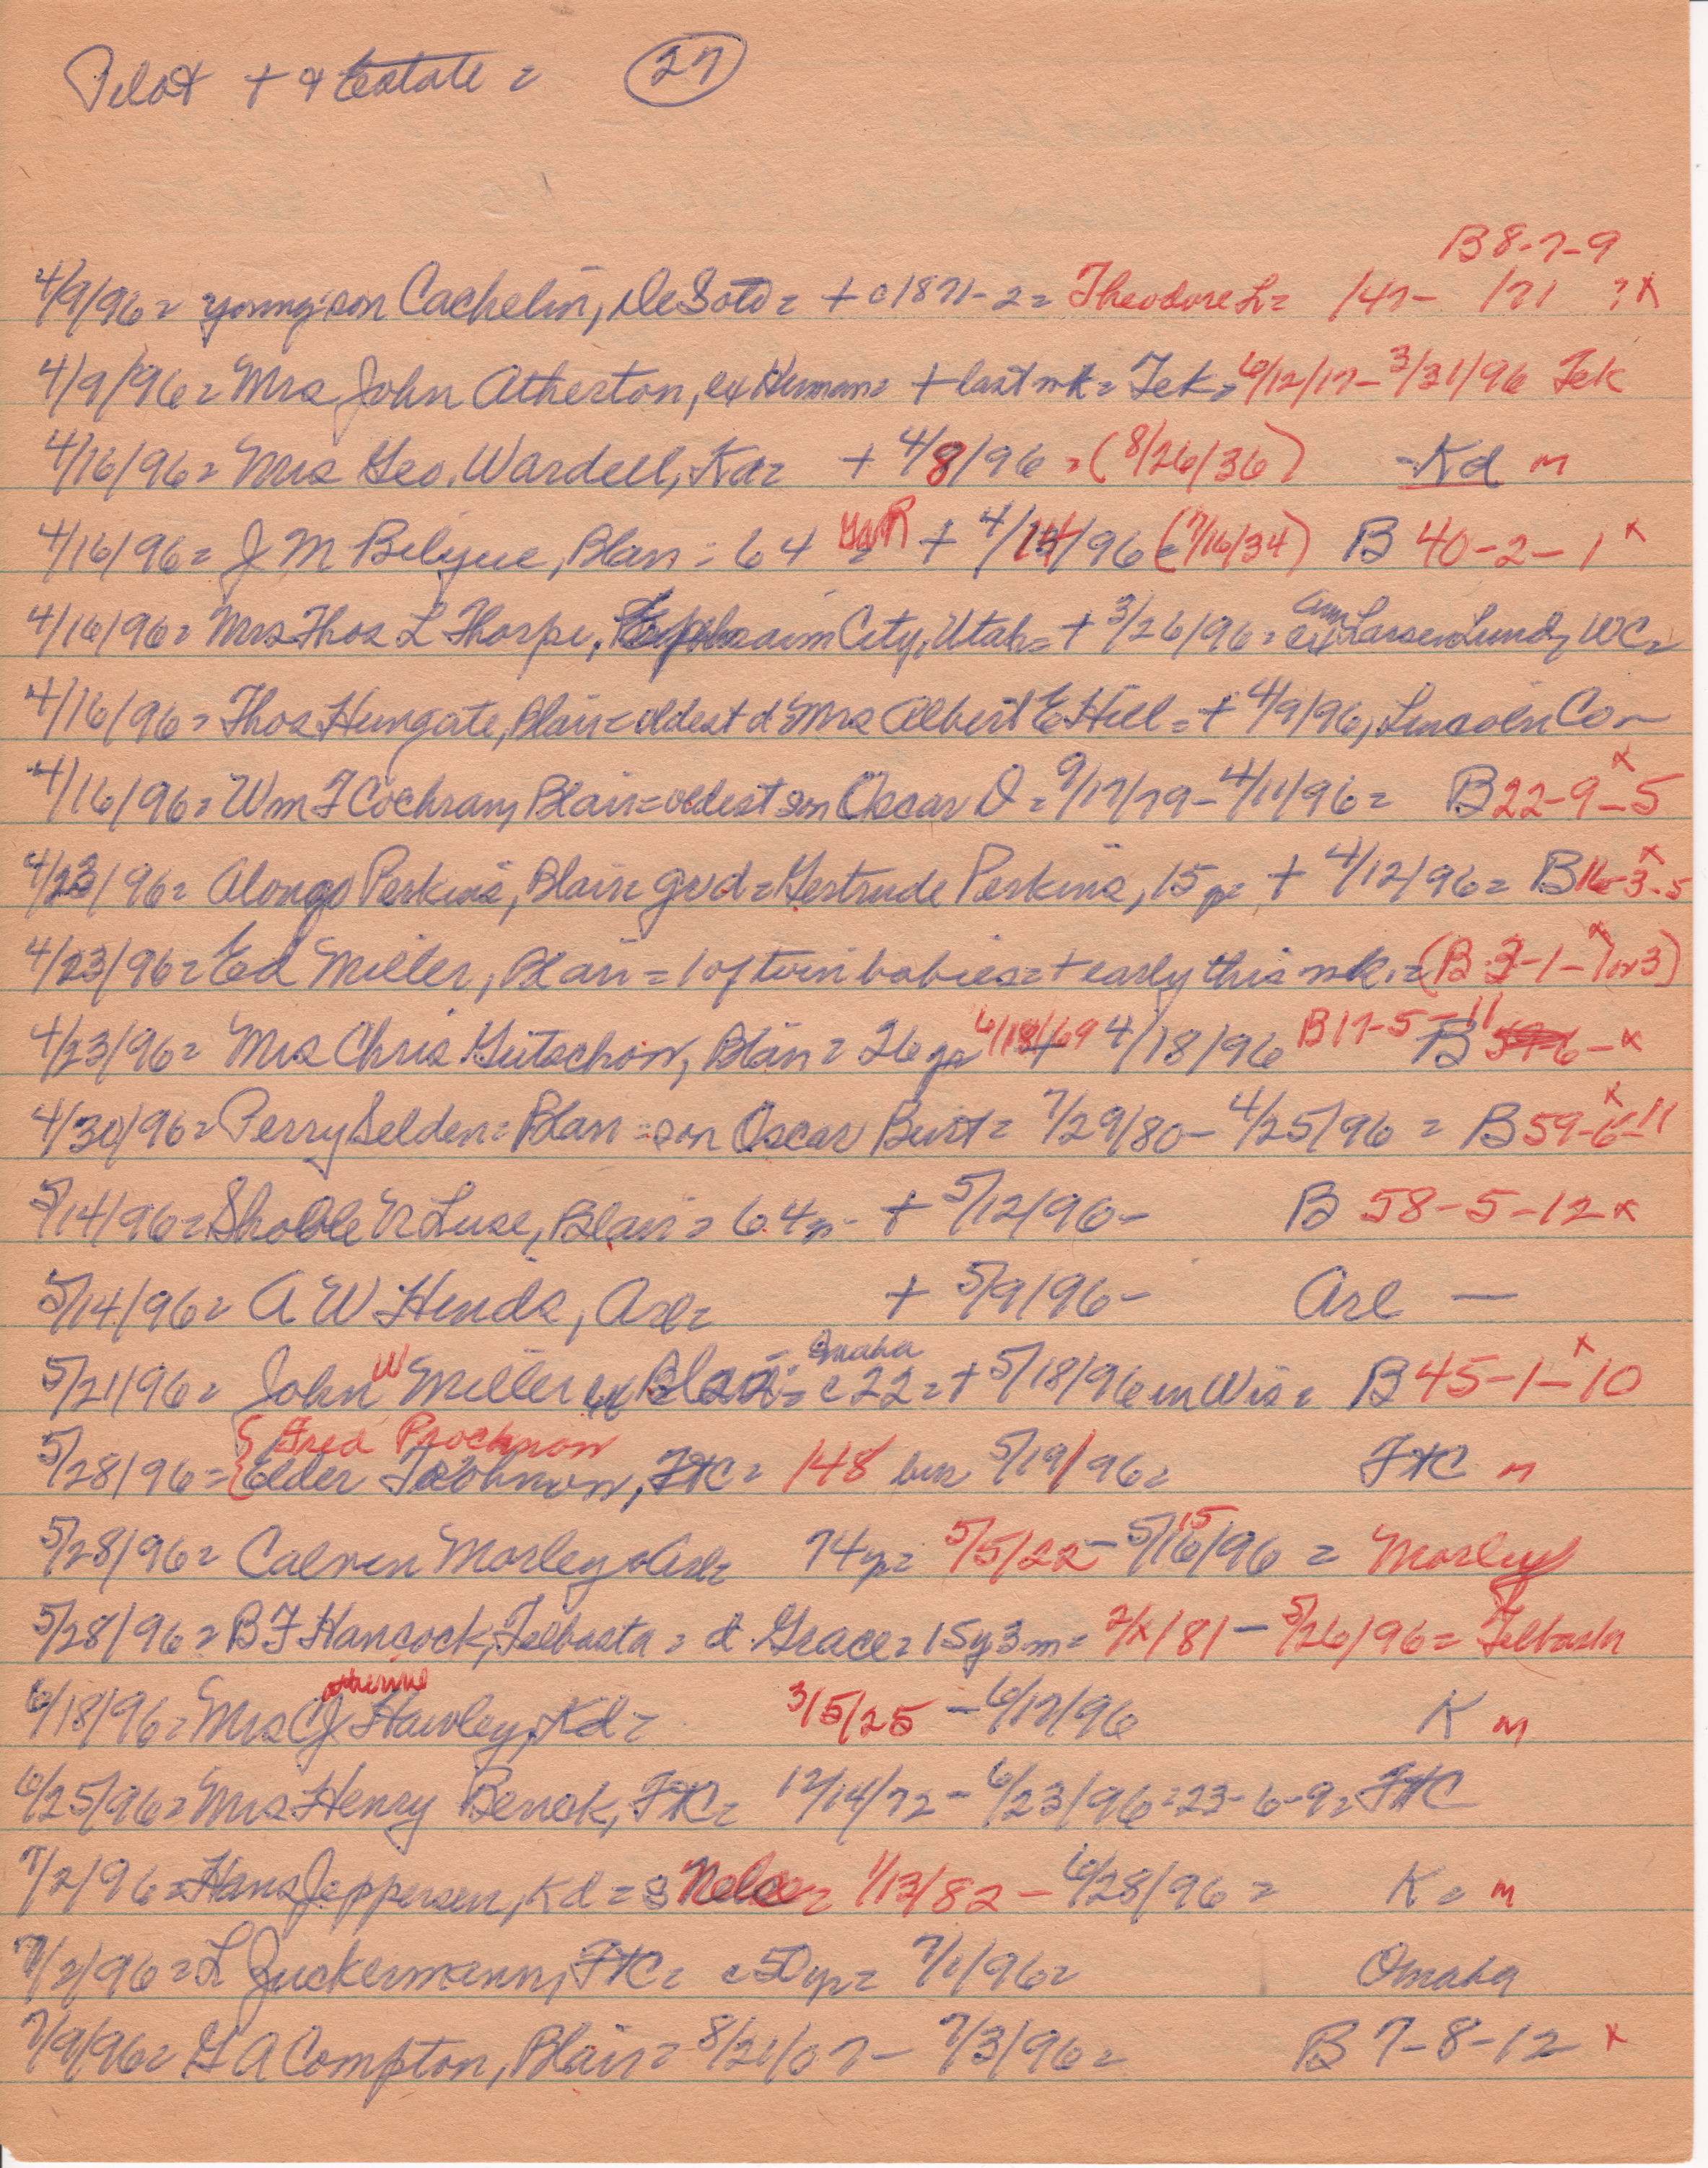 Pilot + & Estate = 27
B 8-7-9
4/9/96 = young son Cachelin, DeSoto = + c1871-2 = Theodore L = /47- /71 ? x
4/9/96 = Mrs John Atherton, ex Herman = + last wk = Tek = 6/12/17 - 3/31/96 Tek
4/16/96 = Mrs Geo. Wardell, Kd = + 4/8/96 = (8/26/36) - Kd m
4/16/96 = J M Bilyue, Blair = 64 GaR = + 4/14/96 = (7/16/34) B 40-2-1 x
4/16/96 = Mrs Thos L Thorpe, Ephraim City, Utah = + 3/26/96 = ex Larsen Lund, WC =
4/16/96 = Thos Hungate, Blair = oldest d Mrs Albert E Hill = + 4/9/96, Lincoln Co -
4/16/96 = Wm F Cochran, Blair = oldest son Oscar O = 9/17/79 - 4/11/96 = B 22-9-5 x
4/23/96 = Alonzo Perkins, Blair = gr d = Gertrude Perkins, 15 y = + 4/12/96 = B 16-3-5 x
4/23/96 = Ed Miller, Blair = 1 of twin babies = + early this wk. = (B 3-1-1 or 3) x
4/23/96 = Mrs Chris Gutschow, Blair = 26 yr 6/18/69 4/18/96 B 17-5-11 B 59-6 - x
4/30/96 = Perry Selden = Blair = son Oscar Burt = 7/29/80 - 4/25/96 = B 59-6-11 x
5/14/96 = Shoble R Luse, Blair = 64 yr - + 5/12/96 - B 58-5-12 x
5/14/96 = A W Hinds, Arl = + 5/9/96 - Arl —
5/21/96 = John W Miller ex Blair = Omaha c 22 = + 5/18/96 in Wis = B 45-1-10 x
{ Fred Prochnow
5/28/96 = { Elder, FtC = 148 bur 5/19/96 = FtC m
5/28/96 = Calvin Morley, Arl = 74 yr = 5/5/22 - 5/15/96 = Morley
5/28/96 = B F Hancock, Telbasta = d Grace = 15 y 3 m = 2/x/81 - 5/26/96 = Telbasta
6/18/96 = Mrs C J Hawley, Kd = 3/5/25 - 6/12/96 K m
6/25/96 = Mrs Henry Benck, FtC = 12/14/72 - 6/23/96 = 23-6-9 = FtC
7/2/96 = Hans Jeppersen, Kd = s Nels = 1/13/82 - 6/28/96 = K = m
7/2/96 = L Zuckermann, FtC = c 50 yr = 7/1/96 = Omaha
7/9/96 = G A Compton, Blair = 8/21/07 - 7/3/96 = B 7-8-12 x